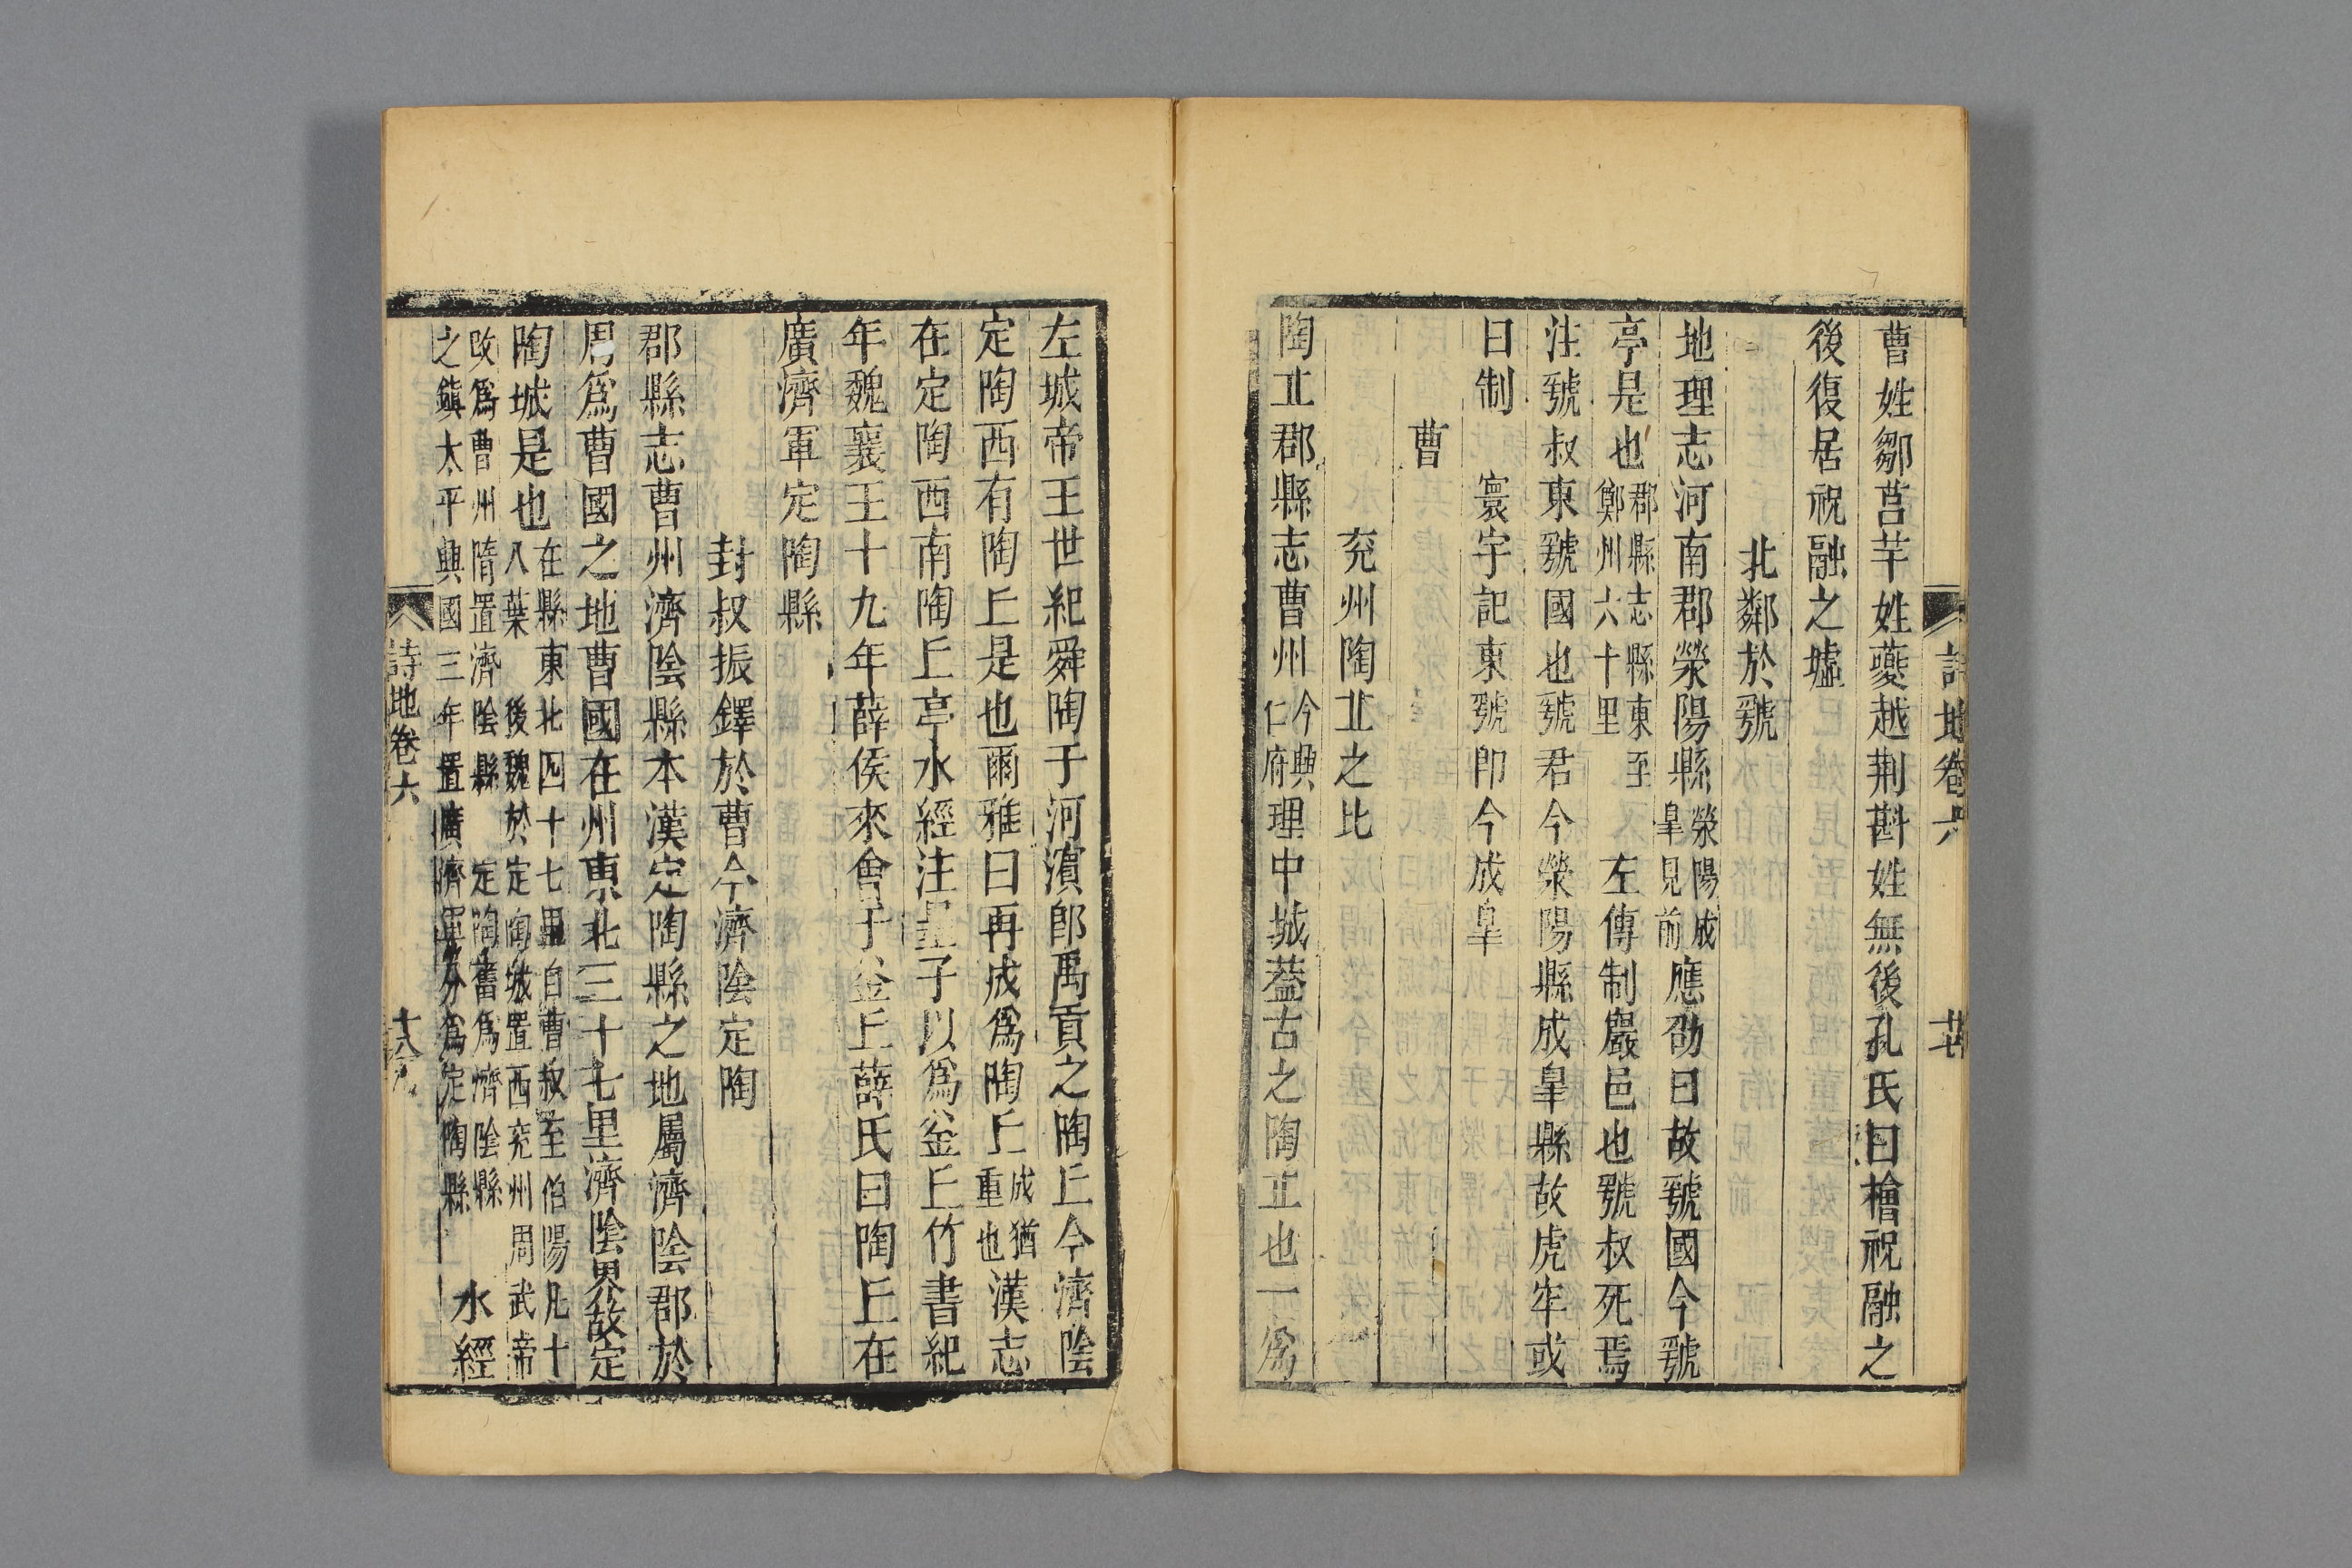 詩地卷六 廿
曹姓鄒莒芊姓夔越荆斟姓無後孔氏曰檜祝融之
後復居祝融之墟
北鄰於虢
地理志河南郡滎陽縣滎陽成皐見前應劭曰故虢國今虢
亭是也郡縣志縣東至鄭州六十里 左傳制巖邑也虢叔死焉
注虢叔東虢國也虢君今滎陽縣成皐縣故虎牢或
曰制 寰宇記東虢卽今成皐
曹
兖州陶丠之北
陶丠郡縣志曹州今興仁府理中城葢古之陶丠也一爲
左城帝王世紀舜陶于河濵郎禹貢之陶丘今濟陰
定陶西有陶丘是也爾雅曰再成爲陶丘成猶重也漢志
在定陶西南陶丘亭水經注墨子以爲釜丘竹書紀
年魏襄王十九年薛侯來會于釜丘薛氏曰陶丘在
廣濟軍定陶縣
封叔振鐸於曹今濟陰定陶
郡縣志曹州濟陰縣本漢定陶縣之地屬濟陰郡於
周爲曹國之地曹國在州東北三十七里濟陰界故定
陶城是也在縣東北四十七里自曹叔至伯陽凡十八葉 後魏於定陶城置西兖州周武帝
改爲曹州隋置濟陰縣 定陶舊爲濟陰縣之鎮太平興國三年置廣濟軍分爲定陶縣 水經
詩地卷六 十八